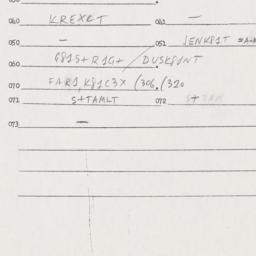 040 KREXET 041 —
050 — 051 JENK81T
060 G81S+R1G+ DUSK81NT
070 FAR1,K81C3X (306,(320
071 S+TAMLT 072 S+TAM
073 —